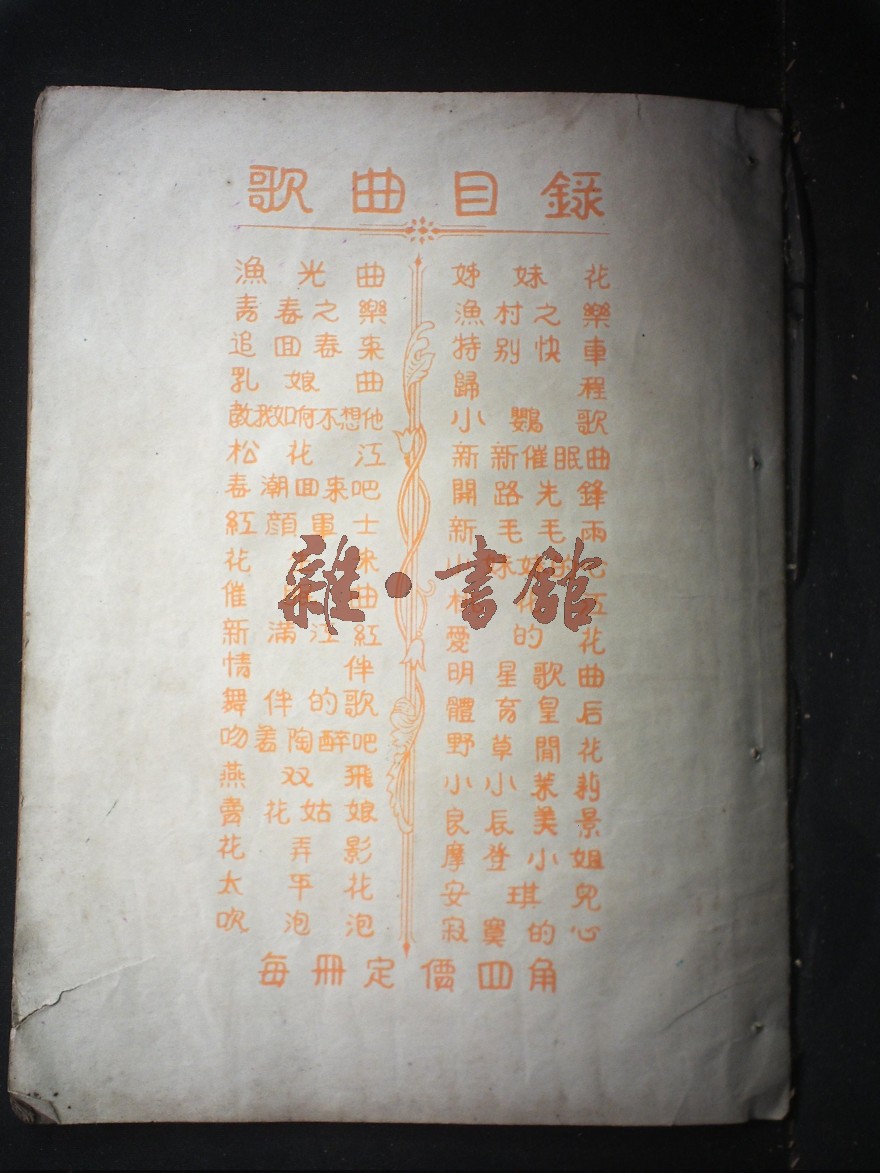 歌曲目錄
漁光曲
青春之樂
追回春来
乳娘曲
教我如何不想他
松花江
春潮回来吧
紅顏軍士
花
催曲
新滿江紅
情伴
舞伴的歌
吻着陶醉吧
燕双飛
賣花姑娘
花弄影
太平花
吹泡泡
姊妹花
漁村之樂
特别快車
歸程
小鸚歌
新新催眠曲
開路先鋒
新毛毛雨
愛的花
明星歌曲
體育皇后
野草閒花
小小茉莉
良辰美景
摩登小姐
安琪兒
寂寞的心
每冊定價四角
雜·書館